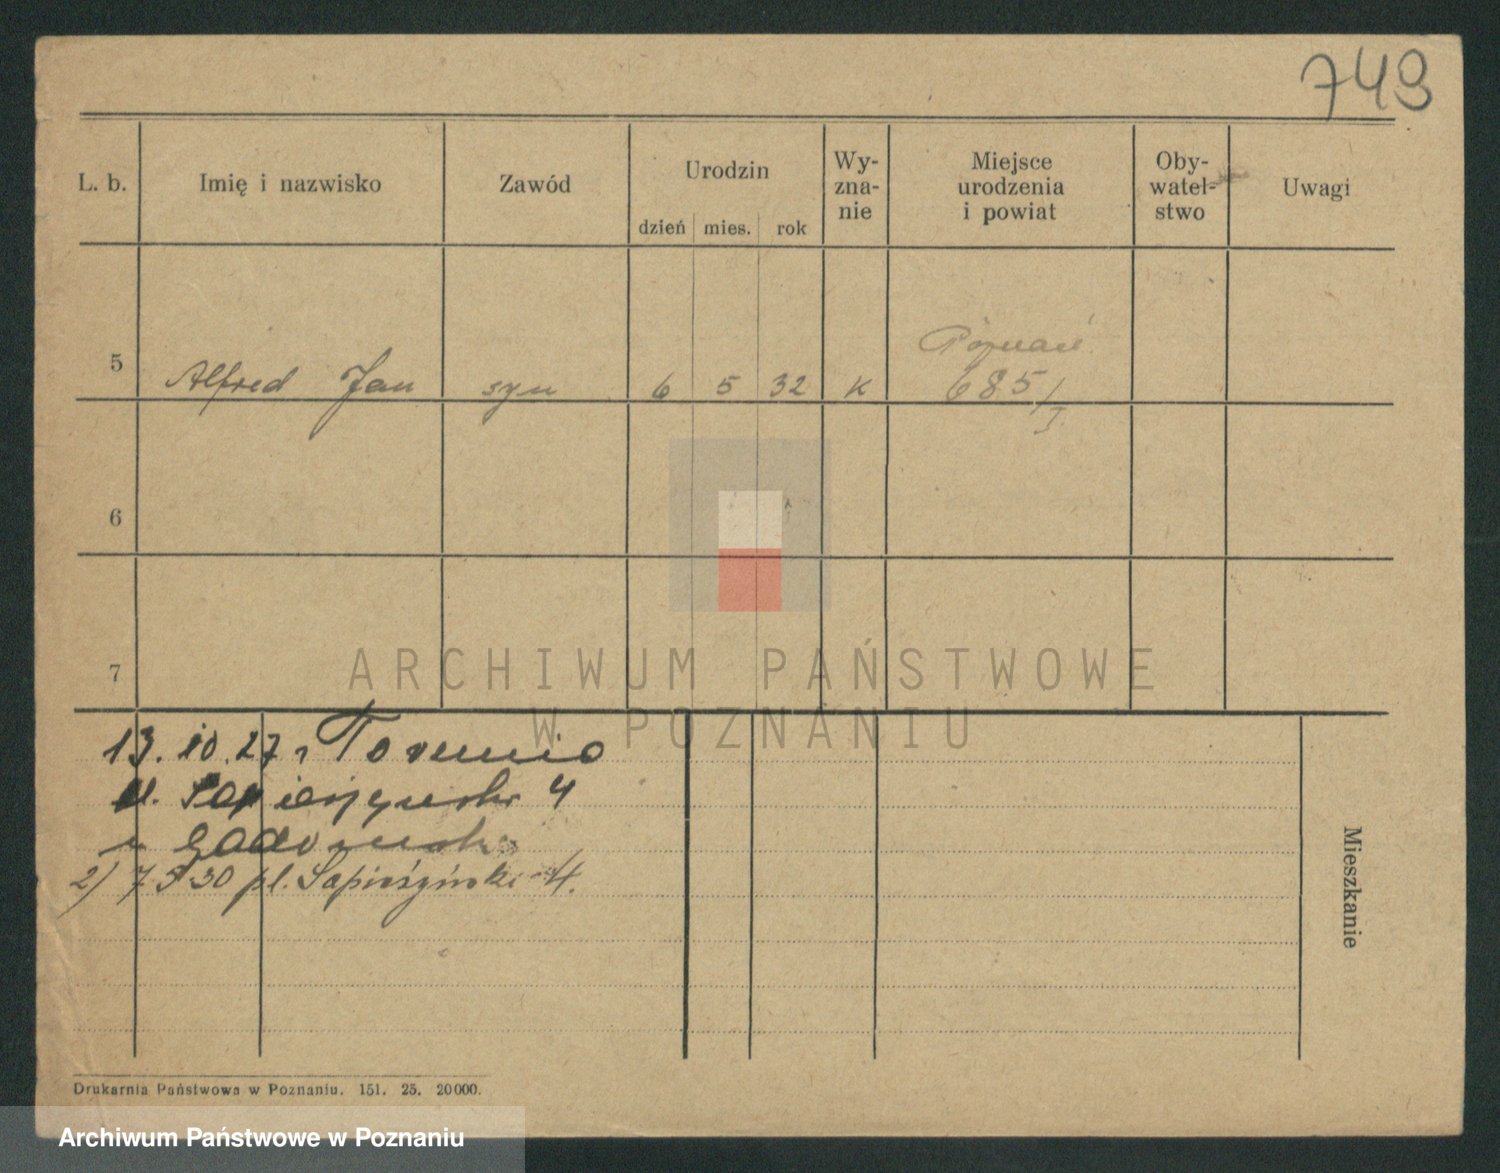 749
L. b. Imię i nazwisko Zawód Urodzin Wy-zna-nie Miejsce urodzenia i powiat Oby-watel-stwo Uwagi
dzień mies. rok
Poznań
5 Alfred Jan syn 6 5 32 K 685/I
6
7
ARCHIWUM PAŃSTWOWE
W POZNANIU
13. 10. 27 Torunia
pl. Sapieżyński 4
2) 7 5 30 pl. Sapieżyński 4.
Mieszkanie
Drukarnia Państwowa w Poznaniu. 151. 25. 20000.
Archiwum Państwowe w Poznaniu